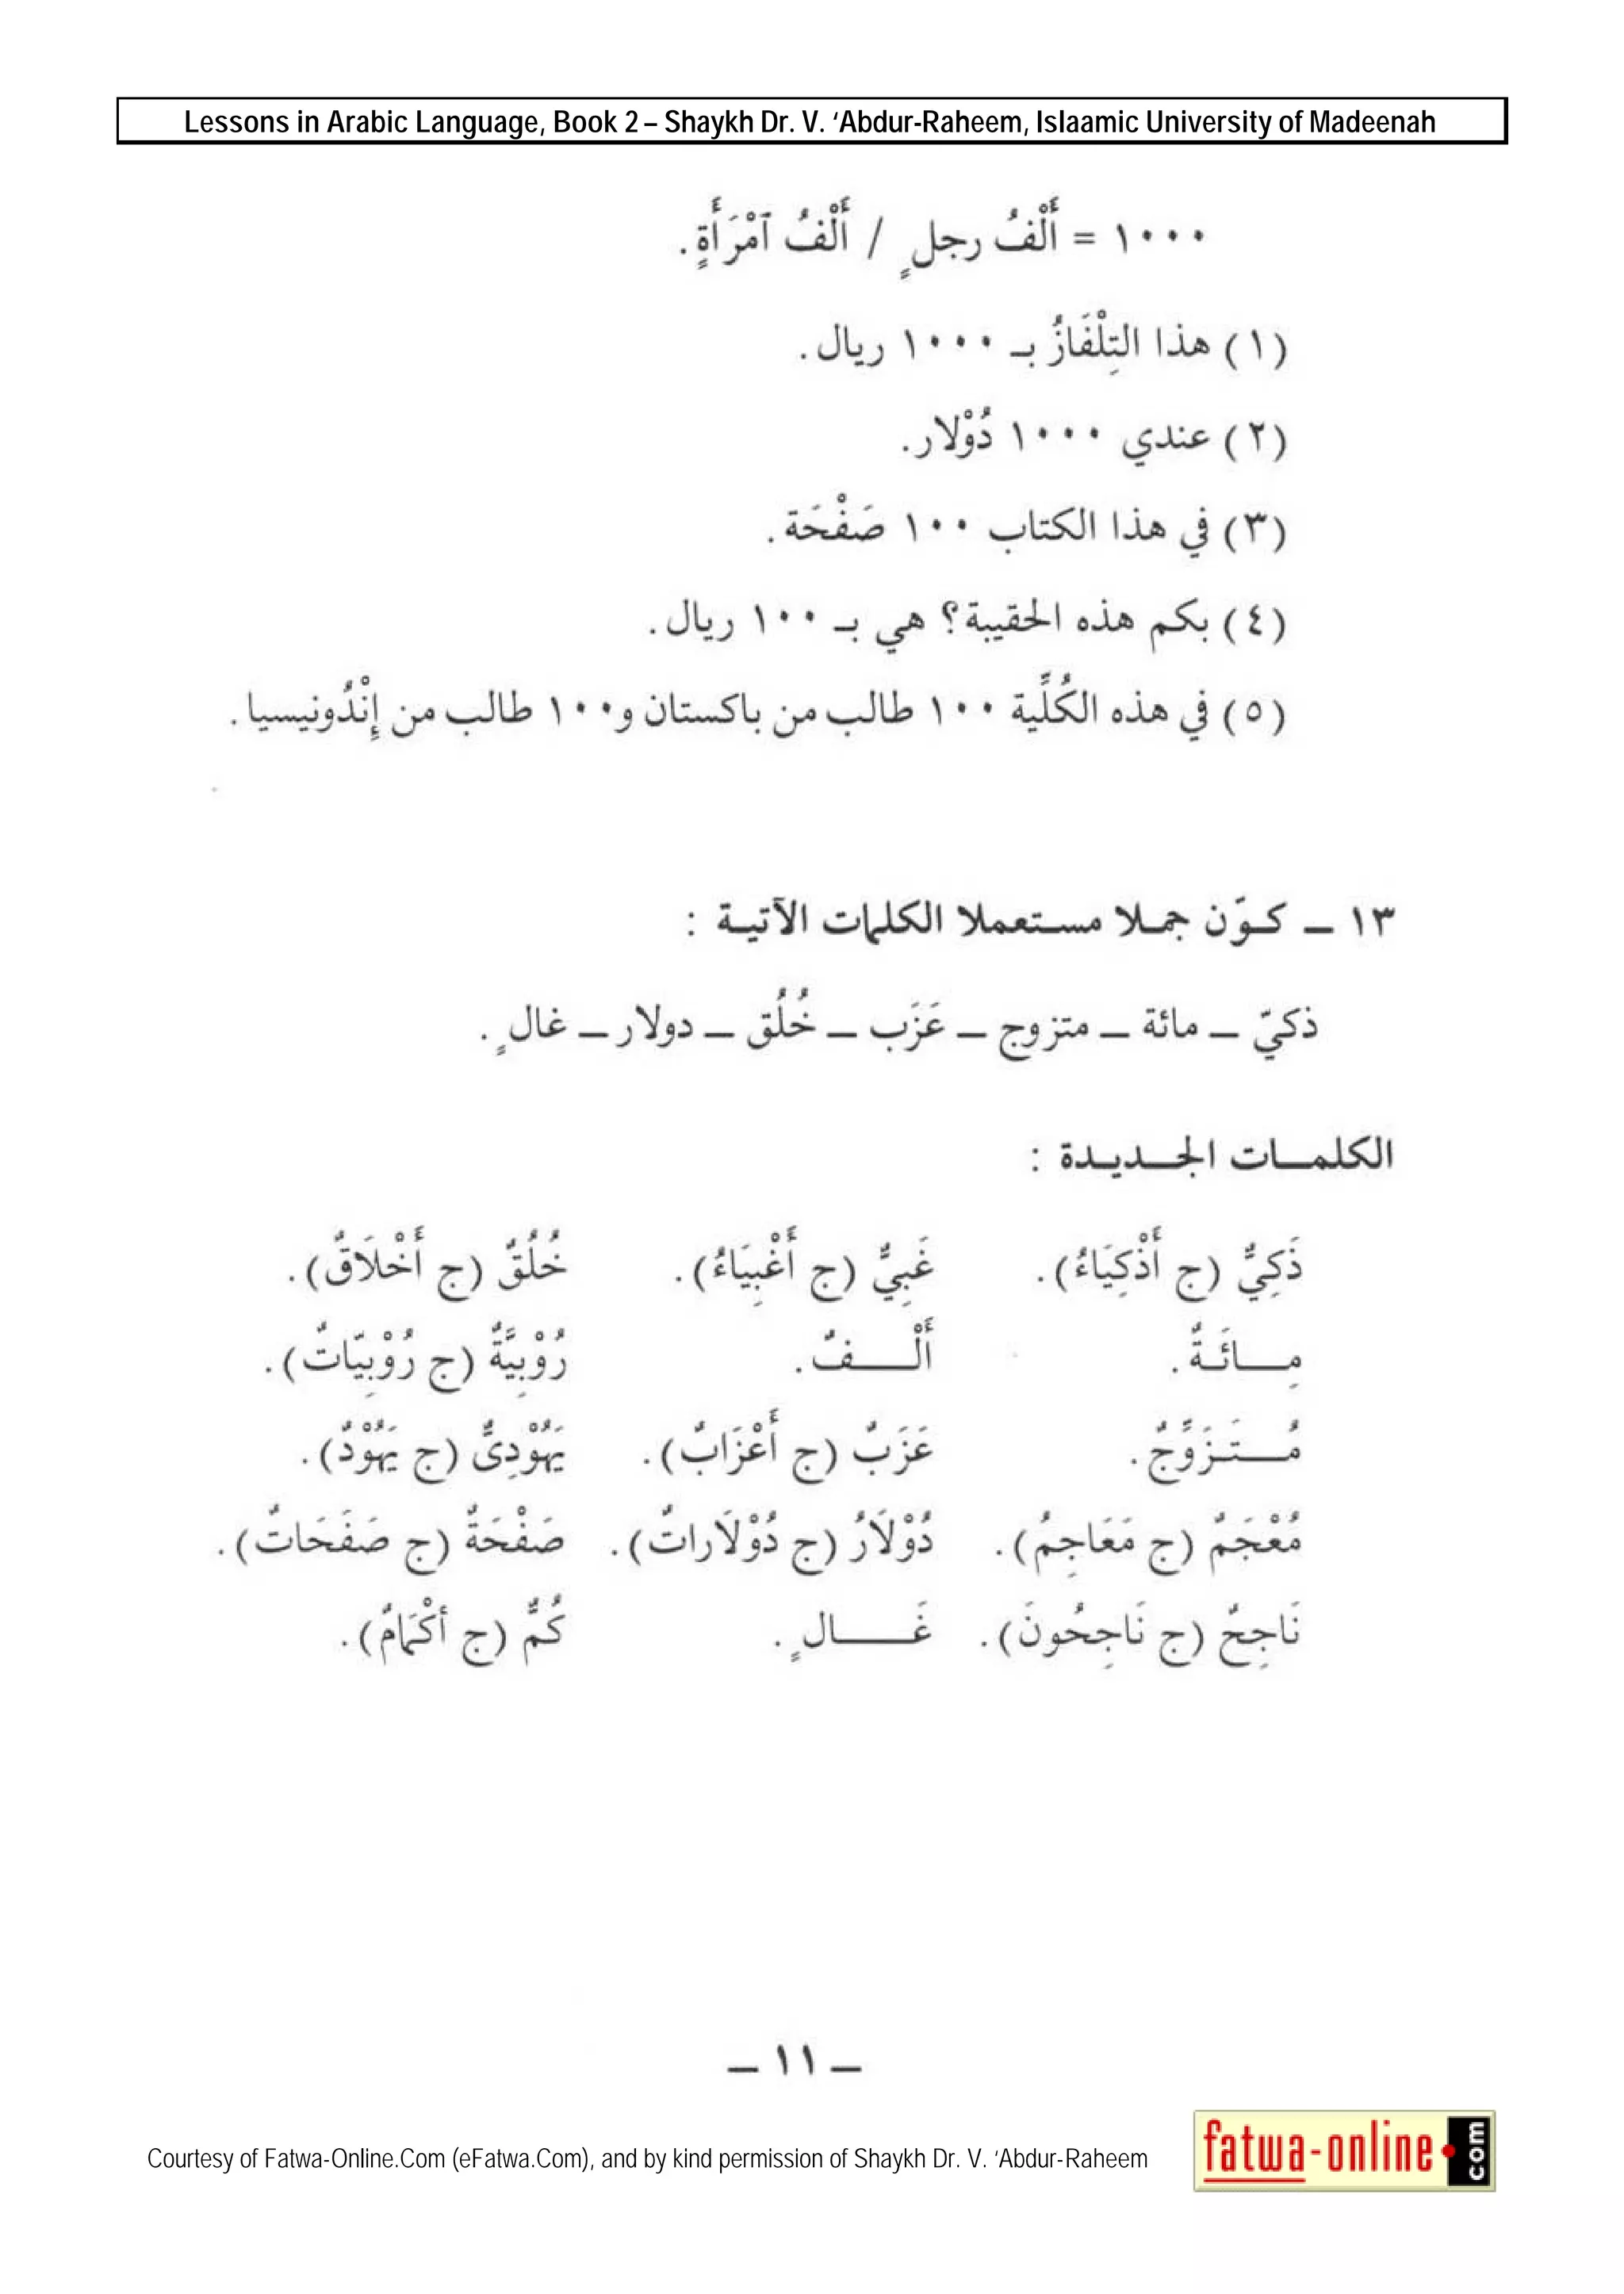 Lessons in Arabic Language, Book 2 – Shaykh Dr. V. ‘Abdur-Raheem, Islaamic University of Madeenah
١٠٠٠ = أَلْفُ رجلٍ / أَلْفُ ٱمْرَأَةٍ.
(١) هذا التِلْفَازُ بـ ١٠٠٠ ريال.
(٢) عندي ١٠٠٠ دُوْلار.
(٣) في هذا الكتاب ١٠٠ صَفْحَة.
(٤) بكم هذه الحقيبة؟ هي بـ ١٠٠ ريال.
(٥) في هذه الكُلِّية ١٠٠ طالب من باكستان و١٠٠ طالب من إِنْدُونيسيا.
١٣ ــ كـوّن جمـلا مستعملا الكلمات الآتيـة :
ذكيّ ــ مائة ــ متزوج ــ عَزَب ــ خُلُق ــ دولار ــ غالٍ.
الكلمـات الجـديـدة :
ذَكِيٌّ (ج أَذْكِيَاءُ). غَبِيٌّ (ج أَغْبِيَاءُ). خُلُقٌ (ج أَخْلَاقٌ).
مِـائَـةٌ. أَلْـفٌ. رُوْبِيَّةٌ (ج رُوْبِيّاتٌ).
مُـتَـزَوِّجٌ. عَزَبٌ (ج أَعْزَابٌ). يَهُوْدِىٌّ (ج يَهُوْدٌ).
مُعْجَمٌ (ج مَعَاجِمُ). دُوْلَارٌ (ج دُوْلَاراتٌ). صَفْحَةٌ (ج صَفَحَاتٌ).
نَاجِحٌ (ج نَاجِحُونَ). غَـالٍ. كُمٌّ (ج أكْمَامٌ).
ــ ١١ ــ
Courtesy of Fatwa-Online.Com (eFatwa.Com), and by kind permission of Shaykh Dr. V. ‘Abdur-Raheem
fatwa-online•com